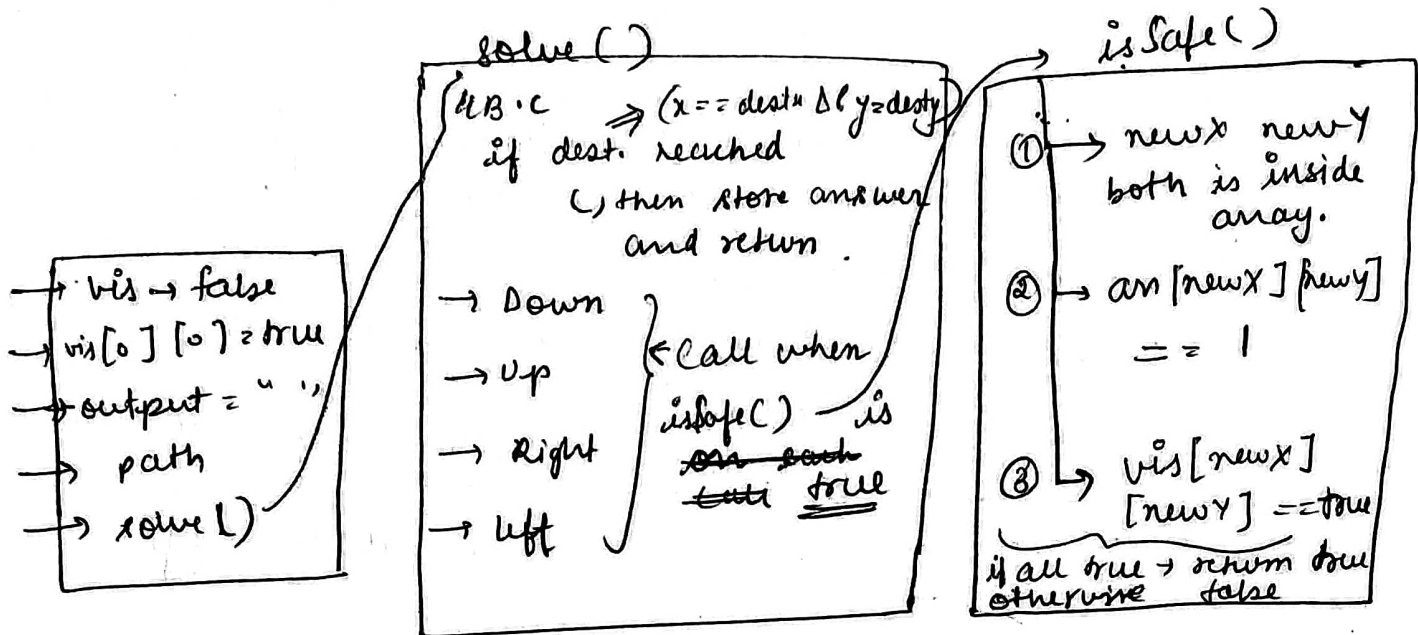 vis → false
vis[0][0] = true
output = " "
path
solve()
solve()
B.C ⇒ (x == destx && y=desty)
if dest. reached
↳ then store answer
and return.
→ Down
→ Up
→ Right
→ Left
call when
isSafe() is
on each
call true
isSafe()
① → newX newY
both is inside
array.
② → arr[newX][newY]
== 1
③ → vis[newX]
[newY] == true
if all true → return true
otherwise false